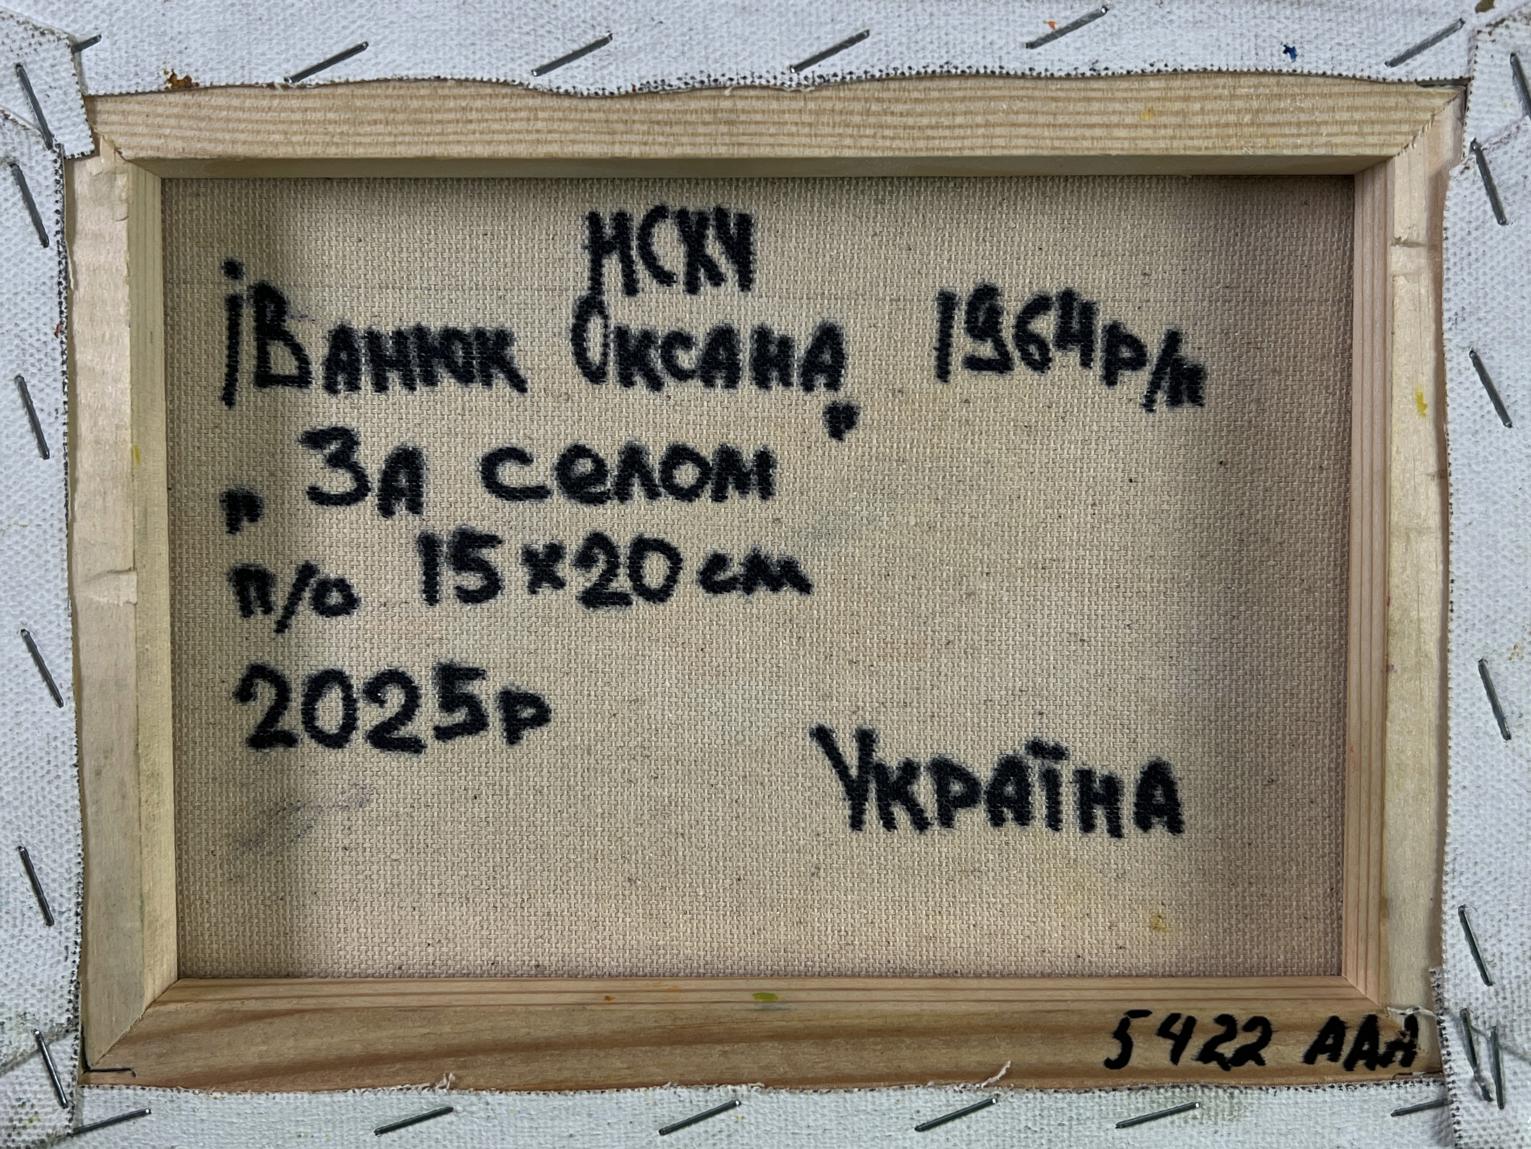 НСХУ
Іванюк Оксана 1964р/н
„За селом"
п/о 15х20см
2025р
Україна
5422 ААА